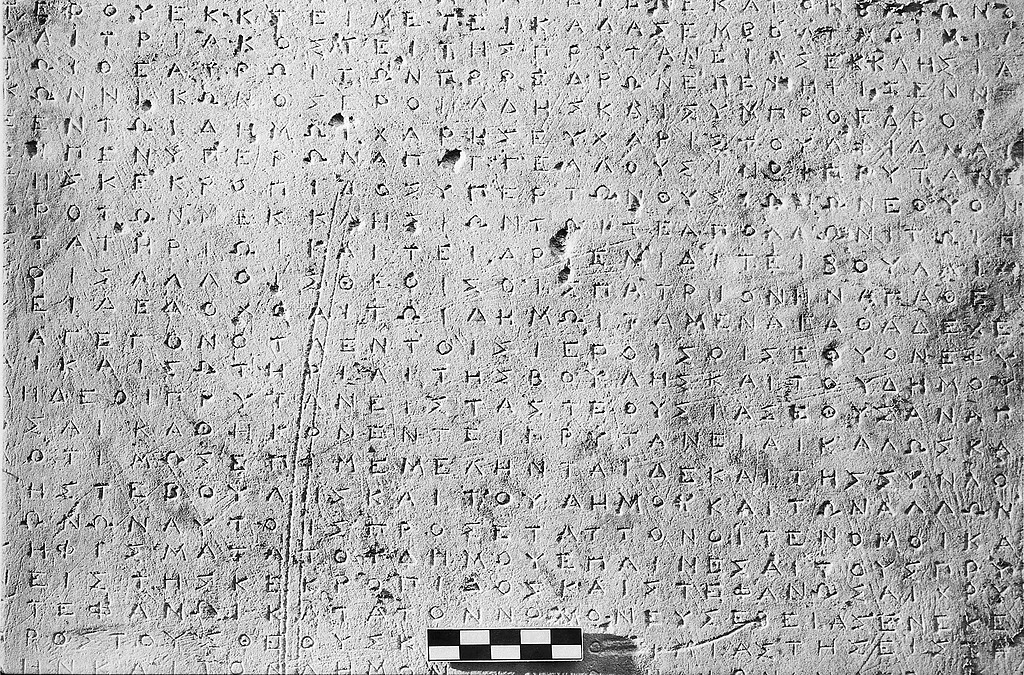 ΕΡΟΥΕΚΚΤΕΙΜΕΤΕΙΚΑΔΑΣΕΜΒΟΛΙΜΩΙΜΙ
ΚΑΙΤΡΙΑΚΟΣΤΕΙΤΗΣΠΡΥΤΑΝΕΙΑΣΕΚΚΛΗΣΙΑ
ΩΙΘΕΑΤΡΩΙΤΩΝΠΡΟΕΔΡΩΝΕΠΕΨΗΦΙΖΕΝΝΕ
ΩΝΝΙΚΩΝΟΣΕΡΟΙΑΔΗΣΚΑΙΣΥΜΠΡΟΕΔΡΟΙ
ΕΝΤΩΙΔΗΜΩΙΧΑΡΗΣΕΥΧΑΡΙΣΤΟΥΑΦΙΔΝΑ
ΕΙΠΕΝΥΠΕΡΩΝΑΠΑΓΓΕΛΛΟΥΣΙΝΟΙΠΡΥΤΑΝΕ
ΗΣΚΕΚΡΟΠΙΔΟΣΥΠΕΡΤΩΝΘΥΣΙΩΝΩΝΕΘΥΟΝ
ΡΟΤΩΝΕΚΚΛΗΣΙΩΝΤΩΙΤΕΑΠΟΛΛΩΝΙΤΩΙΠ
ΤΑΤΗΡΙΩΙΚΑΙΤΕΙΑΡΤΕΜΙΔΙΤΕΙΒΟΥΛΑΙΑ
ΟΙΣΑΛΛΟΙΣΘΕΟΙΣΟΙΣΠΑΤΡΙΟΝΗΝΑΓΑΘΕΙ
ΕΙΔΕΔΟΧΘΑΙΤΩΙΔΗΜΩΙΤΑΜΕΝΑΓΑΘΑΔΕΧΕ
ΑΙΓΕΓΟΝΟΤΑΕΝΤΟΙΣΙΕΡΟΙΣΟΙΣΕΘΥΟΝΕΦΥ
ΑΙΚΑΙΣΩΤΗΡΙΑΙΤΗΣΒΟΥΛΗΣΚΑΙΤΟΥΔΗΜΟΥ
ΗΔΕΟΙΠΡΥΤΑΝΕΙΣΤΑΣΤΕΘΥΣΙΑΣΕΘΥΣΑΝΑΠ
ΣΑΙΚΑΘΗΚΟΝΕΝΤΕΙΠΡΥΤΑΝΕΙΑΙΚΑΛΩΣΚΑ
ΟΤΙΜΩΣΕΠΙΜΕΜΕΛΗΝΤΑΙΔΕΚΑΙΤΗΣΣΥΛΛΟ
ΗΣΤΕΒΟΥΛΗΣΚΑΙΤΟΥΔΗΜΟΥΚΑΙΤΩΝΑΛΛΩΝ
ΩΝΩΝΑΥΤΟΙΣΠΡΟΣΕΤΑΤΤΟΝΟΙΤΕΝΟΜΟΙΚΑ
ΗΦΙΣΜΑΤΑΤΟΥΔΗΜΟΥΕΠΑΙΝΕΣΑΙΤΟΥΣΠΡΥ
ΕΙΣΤΗΣΚΕΚΡΟΠΙΔΟΣΚΑΙΣΤΕΦΑΝΩΣΑΙΧΡΥ
ΤΕΦΑΝΩΙΚΑΤΑΤΟΝΝΟΜΟΝΕΥΣΕΒΕΙΑΣΕΝΕΚΕ
ΡΟΣΤΟΥΣΘΕΟΥΣΚ ΑΣΤΗΣΕΙΣΤ
ΗΝΚΑΙΤΟΝΔΗΜΟ